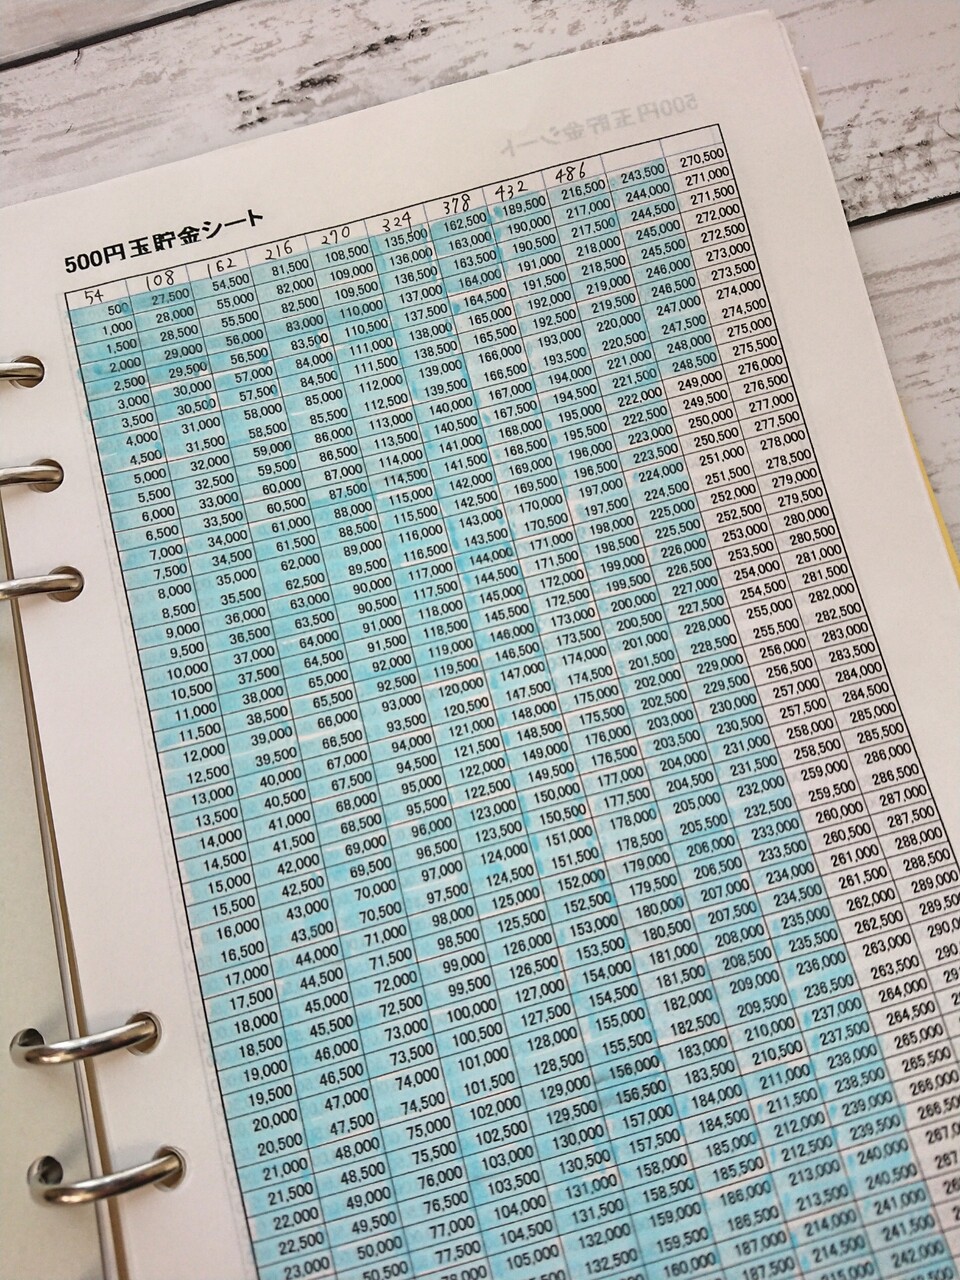 500円玉貯金シート
54 108 162 216 270 324 378 432 486
500 27,500 54,500 81,500 108,500 135,500 162,500 189,500 216,500 243,500 270,500
1,000 28,000 55,000 82,000 109,000 136,000 163,000 190,000 217,000 244,000 271,000
1,500 28,500 55,500 82,500 109,500 136,500 163,500 190,500 217,500 244,500 271,500
2,000 29,000 56,000 83,000 110,000 137,000 164,000 191,000 218,000 245,000 272,000
2,500 29,500 56,500 83,500 110,500 137,500 164,500 191,500 218,500 245,500 272,500
3,000 30,000 57,000 84,000 111,000 138,000 165,000 192,000 219,000 246,000 273,000
3,500 30,500 57,500 84,500 111,500 138,500 165,500 192,500 219,500 246,500 273,500
4,000 31,000 58,000 85,000 112,000 139,000 166,000 193,000 220,000 247,000 274,000
4,500 31,500 58,500 85,500 112,500 139,500 166,500 193,500 220,500 247,500 274,500
5,000 32,000 59,000 86,000 113,000 140,000 167,000 194,000 221,000 248,000 275,000
5,500 32,500 59,500 86,500 113,500 140,500 167,500 194,500 221,500 248,500 275,500
6,000 33,000 60,000 87,000 114,000 141,000 168,000 195,000 222,000 249,000 276,000
6,500 33,500 60,500 87,500 114,500 141,500 168,500 195,500 222,500 249,500 276,500
7,000 34,000 61,000 88,000 115,000 142,000 169,000 196,000 223,000 250,000 277,000
7,500 34,500 61,500 88,500 115,500 142,500 169,500 196,500 223,500 250,500 277,500
8,000 35,000 62,000 89,000 116,000 143,000 170,000 197,000 224,000 251,000 278,000
8,500 35,500 62,500 89,500 116,500 143,500 170,500 197,500 224,500 251,500 278,500
9,000 36,000 63,000 90,000 117,000 144,000 171,000 198,000 225,000 252,000 279,000
9,500 36,500 63,500 90,500 117,500 144,500 171,500 198,500 225,500 252,500 279,500
10,000 37,000 64,000 91,000 118,000 145,000 172,000 199,000 226,000 253,000 280,000
10,500 37,500 64,500 91,500 118,500 145,500 172,500 199,500 226,500 253,500 280,500
11,000 38,000 65,000 92,000 119,000 146,000 173,000 200,000 227,000 254,000 281,000
11,500 38,500 65,500 92,500 119,500 146,500 173,500 200,500 227,500 254,500 281,500
12,000 39,000 66,000 93,000 120,000 147,000 174,000 201,000 228,000 255,000 282,000
12,500 39,500 66,500 93,500 120,500 147,500 174,500 201,500 228,500 255,500 282,500
13,000 40,000 67,000 94,000 121,000 148,000 175,000 202,000 229,000 256,000 283,000
13,500 40,500 67,500 94,500 121,500 148,500 175,500 202,500 229,500 256,500 283,500
14,000 41,000 68,000 95,000 122,000 149,000 176,000 203,000 230,000 257,000 284,000
14,500 41,500 68,500 95,500 122,500 149,500 176,500 203,500 230,500 257,500 284,500
15,000 42,000 69,000 96,000 123,000 150,000 177,000 204,000 231,000 258,000 285,000
15,500 42,500 69,500 96,500 123,500 150,500 177,500 204,500 231,500 258,500 285,500
16,000 43,000 70,000 97,000 124,000 151,000 178,000 205,000 232,000 259,000 286,000
16,500 43,500 70,500 97,500 124,500 151,500 178,500 205,500 232,500 259,500 286,500
17,000 44,000 71,000 98,000 125,000 152,000 179,000 206,000 233,000 260,000 287,000
17,500 44,500 71,500 98,500 125,500 152,500 179,500 206,500 233,500 260,500 287,500
18,000 45,000 72,000 99,000 126,000 153,000 180,000 207,000 234,000 261,000 288,000
18,500 45,500 72,500 99,500 126,500 153,500 180,500 207,500 234,500 261,500 288,500
19,000 46,000 73,000 100,000 127,000 154,000 181,000 208,000 235,000 262,000 289,000
19,500 46,500 73,500 100,500 127,500 154,500 181,500 208,500 235,500 262,500
20,000 47,000 74,000 101,000 128,000 155,000 182,000 209,000 236,000 263,000
20,500 47,500 74,500 101,500 128,500 155,500 182,500 209,500 236,500 263,500
21,000 48,000 75,000 102,000 129,000 156,000 183,000 210,000 237,000 264,000
21,500 48,500 75,500 102,500 129,500 156,500 183,500 210,500 237,500 264,500
22,000 49,000 76,000 103,000 130,000 157,000 184,000 211,000 238,000 265,000
22,500 49,500 76,500 103,500 130,500 157,500 184,500 211,500 238,500 265,500
23,000 50,000 77,000 104,000 131,000 158,000 185,000 212,000 239,000 266,000
50,500 77,500 104,500 131,500 158,500 185,500 212,500 239,500
105,000 132,000 159,000 186,000 213,000 240,000
132,500 159,500 186,500 213,500 240,500
160,000 187,000 214,000 241,000
187,500 214,500 241,500
242,000